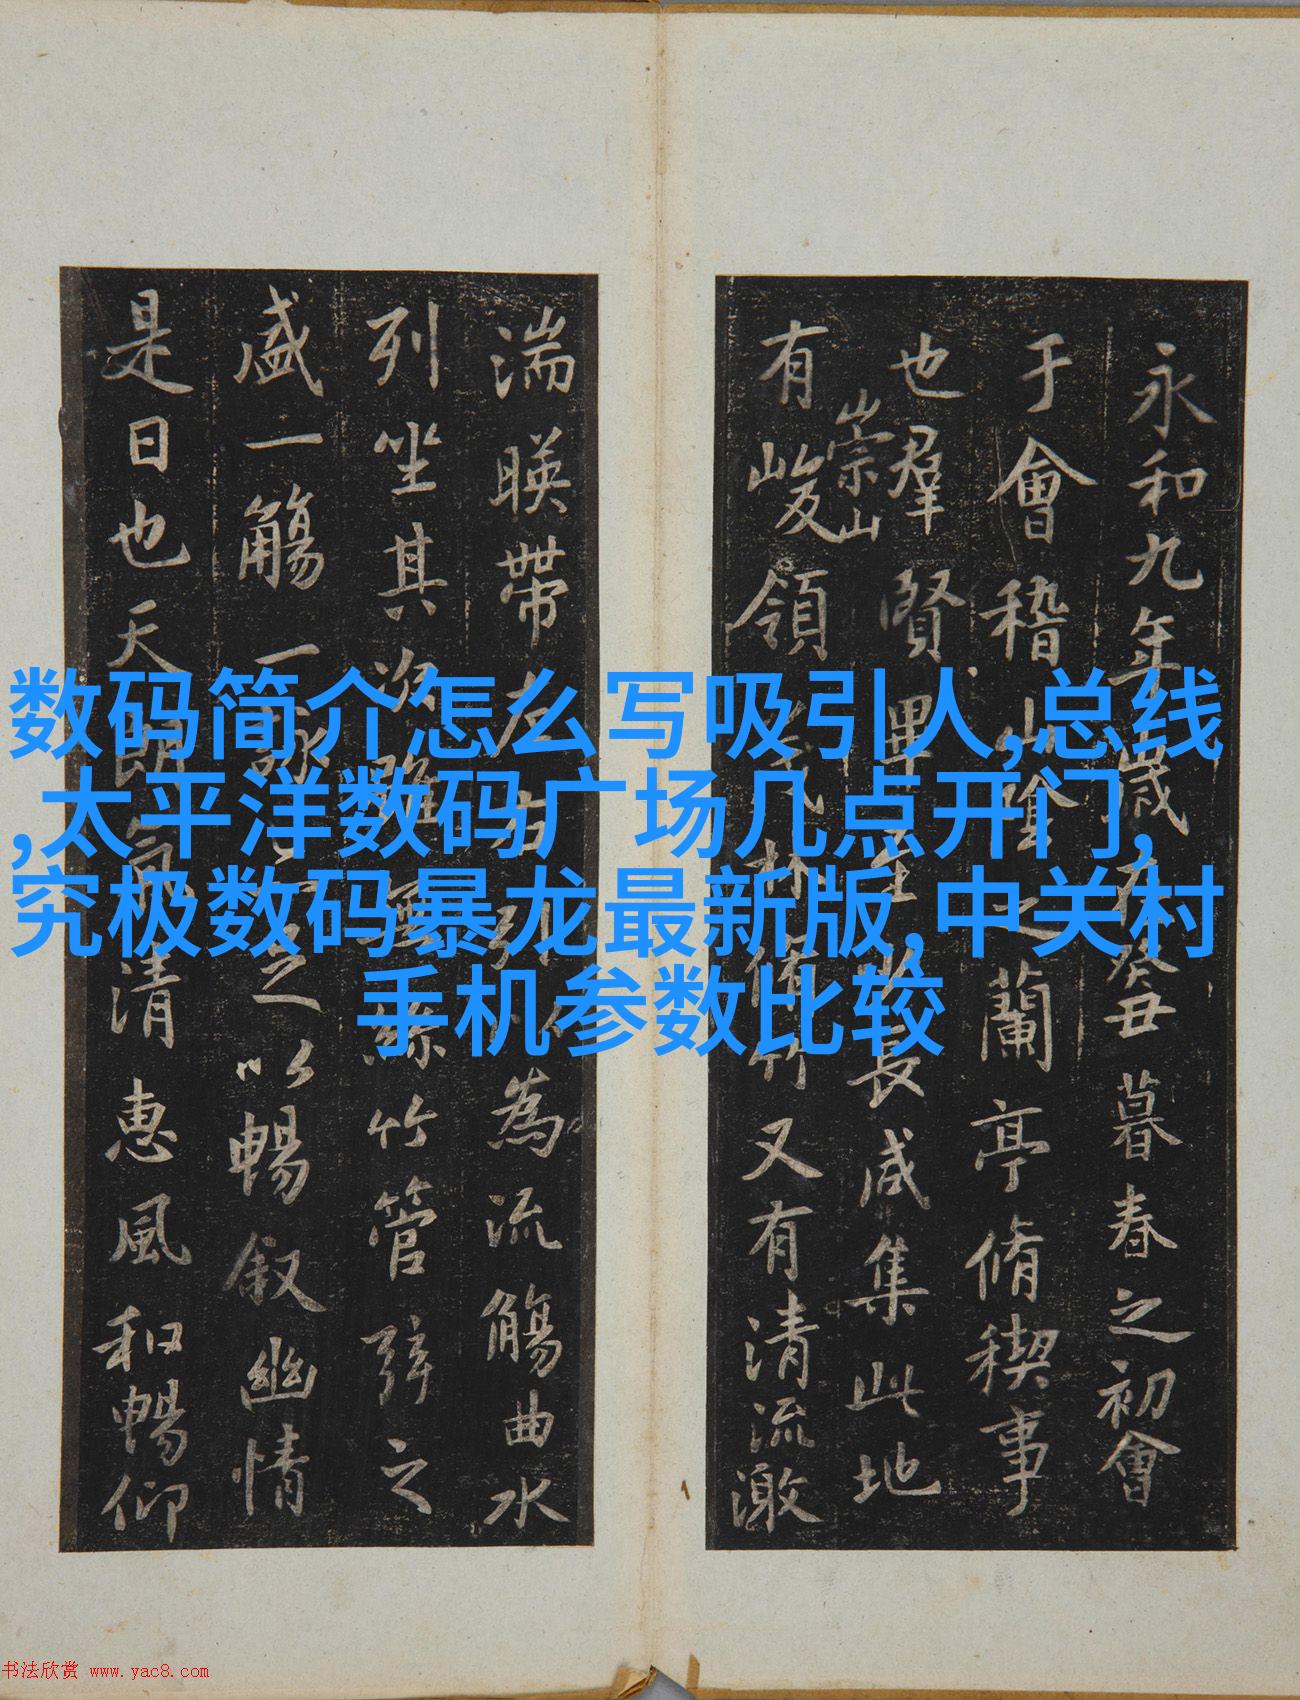 数码简介怎么写吸引人,总线
,太平洋数码广场几点开门,
究极数码暴龙最新版,中关村
手机参数比较
永和九年歲在癸丑暮春之初會
于會稽山陰之蘭亭脩稧事
也羣賢畢至少長咸集此地
崇山
有峻領茂林脩竹又有清流激
湍暎帶左右引以為流觴曲水
列坐其次雖無絲竹管弦之
盛一觴一詠亦足以暢叙幽情
是日也天朗氣清惠風和暢仰
书法欣赏 www.yac8.com